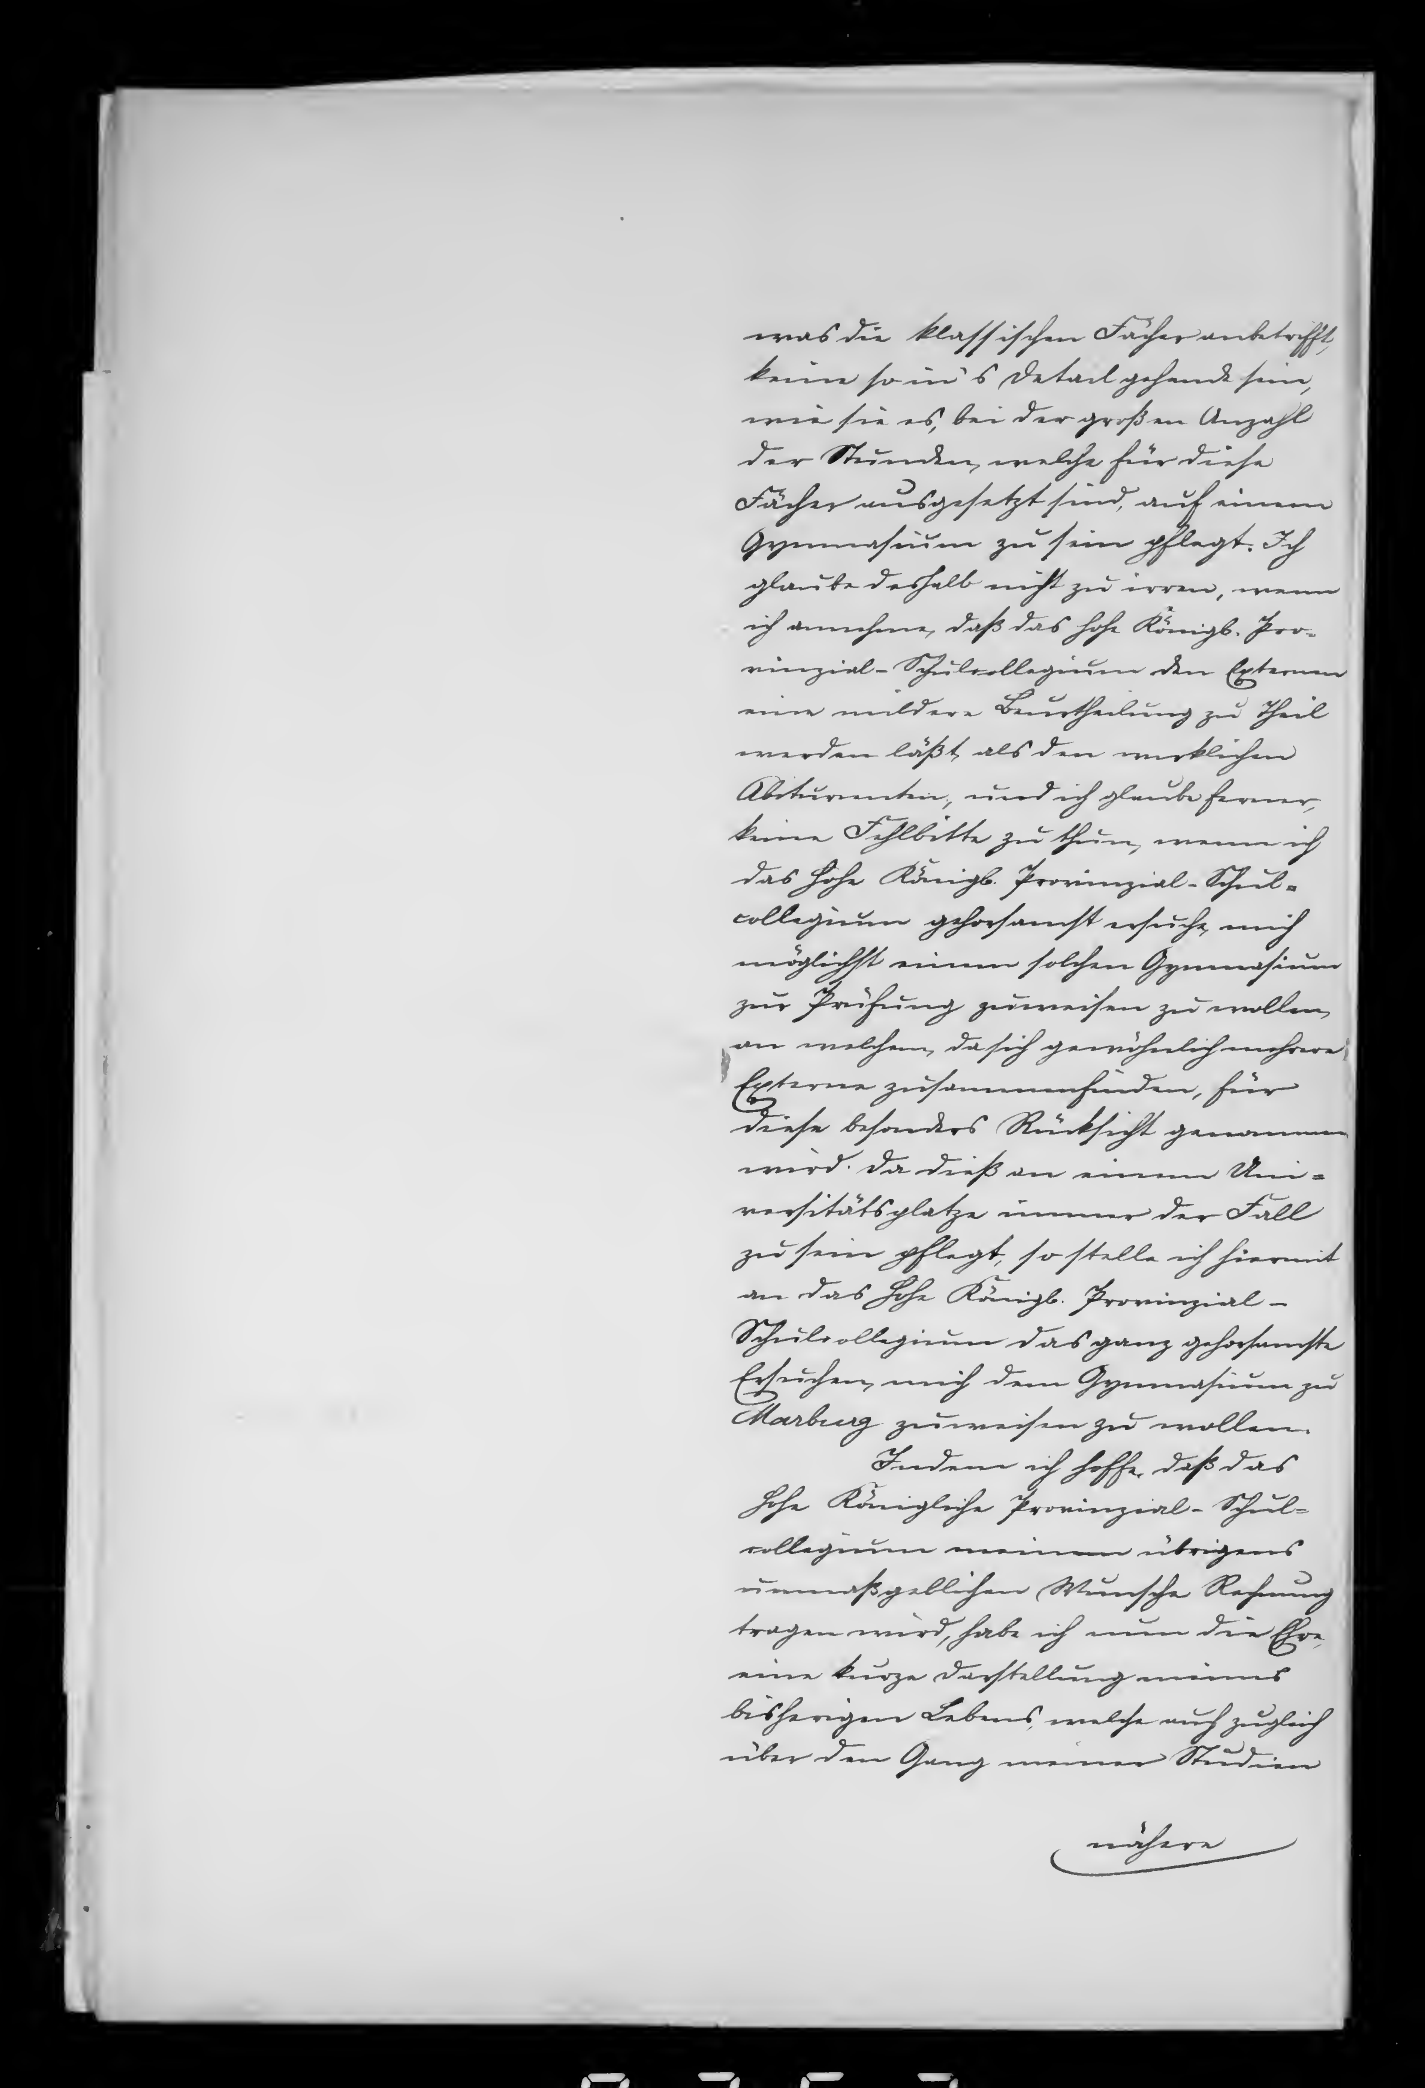 was die klassischen Fächer anbetrifft,
keine so in's Detail gehende sein,
wie sie es, bei der großen Anzahl
der Stunden, welche für diese
Fächer ausgesetzt sind, auf einem
Gymnasium zu sein pflegt. Ich
glaube deshalb nicht zu irren, wenn
ich annehme, daß das hohe Königl. Pro-
vinzial-Schulcollegium den Externen
eine mildere Beurtheilung zu Theil
werden läßt, als den wirklichen
Abiturienten, und ich glaube ferner,
keine Fehlbitte zu thun, wenn ich
das hohe Königl. Provinzial-Schul=
collegium gehorsamst ersuche, mich
möglichst einem solchen Gymnasium
zur Prüfung zuweisen zu wollen,
an welchem, da sich gewöhnlich mehrere
Externe zusammenfinden, für
diese besonders Rücksicht genommen
wird. Da dieß an einem Uni=
versitätsplatze immer der Fall
zu sein pflegt, so stelle ich hiermit
an das hohe Königl. Provinzial-
Schulcollegium das ganz gehorsamste
Ersuchen, mich dem Gymnasium zu
Marburg zuweisen zu wollen.
Indem ich hoffe, daß das
hohe Königliche Provinzial-Schul=
collegium meinem übrigens
unmaßgeblichen Wunsche Rechnung
tragen wird, habe ich nun die Ehre,
eine kurze Darstellung meines
bisherigen Lebens, welche auch zugleich
über den Gang meiner Studien
nähere